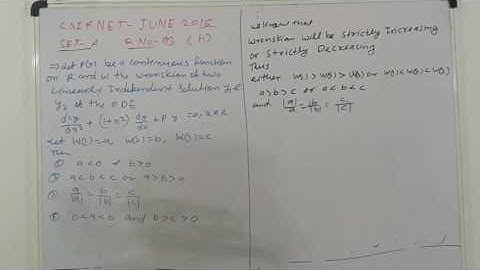 CSIR NET - JUNE 2016
SET- A Q.No-93 (H)
⇒ Let P(x) be a continuous function
on R and W the wronskian of two
Linearly Independent Solution y₁ &
y₂ of the ODE
d²y/dx² + (1+x²) dy/dx + P y =0, x∈R
Let W(1)=a, W(2)=b, W(3)=c
Then
① a<0 & b>0
② a<b<c or a>b>c
③ a/|a| = b/|b| = c/|c|
④ 0<a<b and b>c>0
we know that
wronskian will be strictly Increasing
or Strictly Decreasing
Thus
either W(1)>W(2)>W(3) or W(1)<W(2)<W(3)
a>b>c or a<b<c
and |a|/a = b/|b| = c/|c|